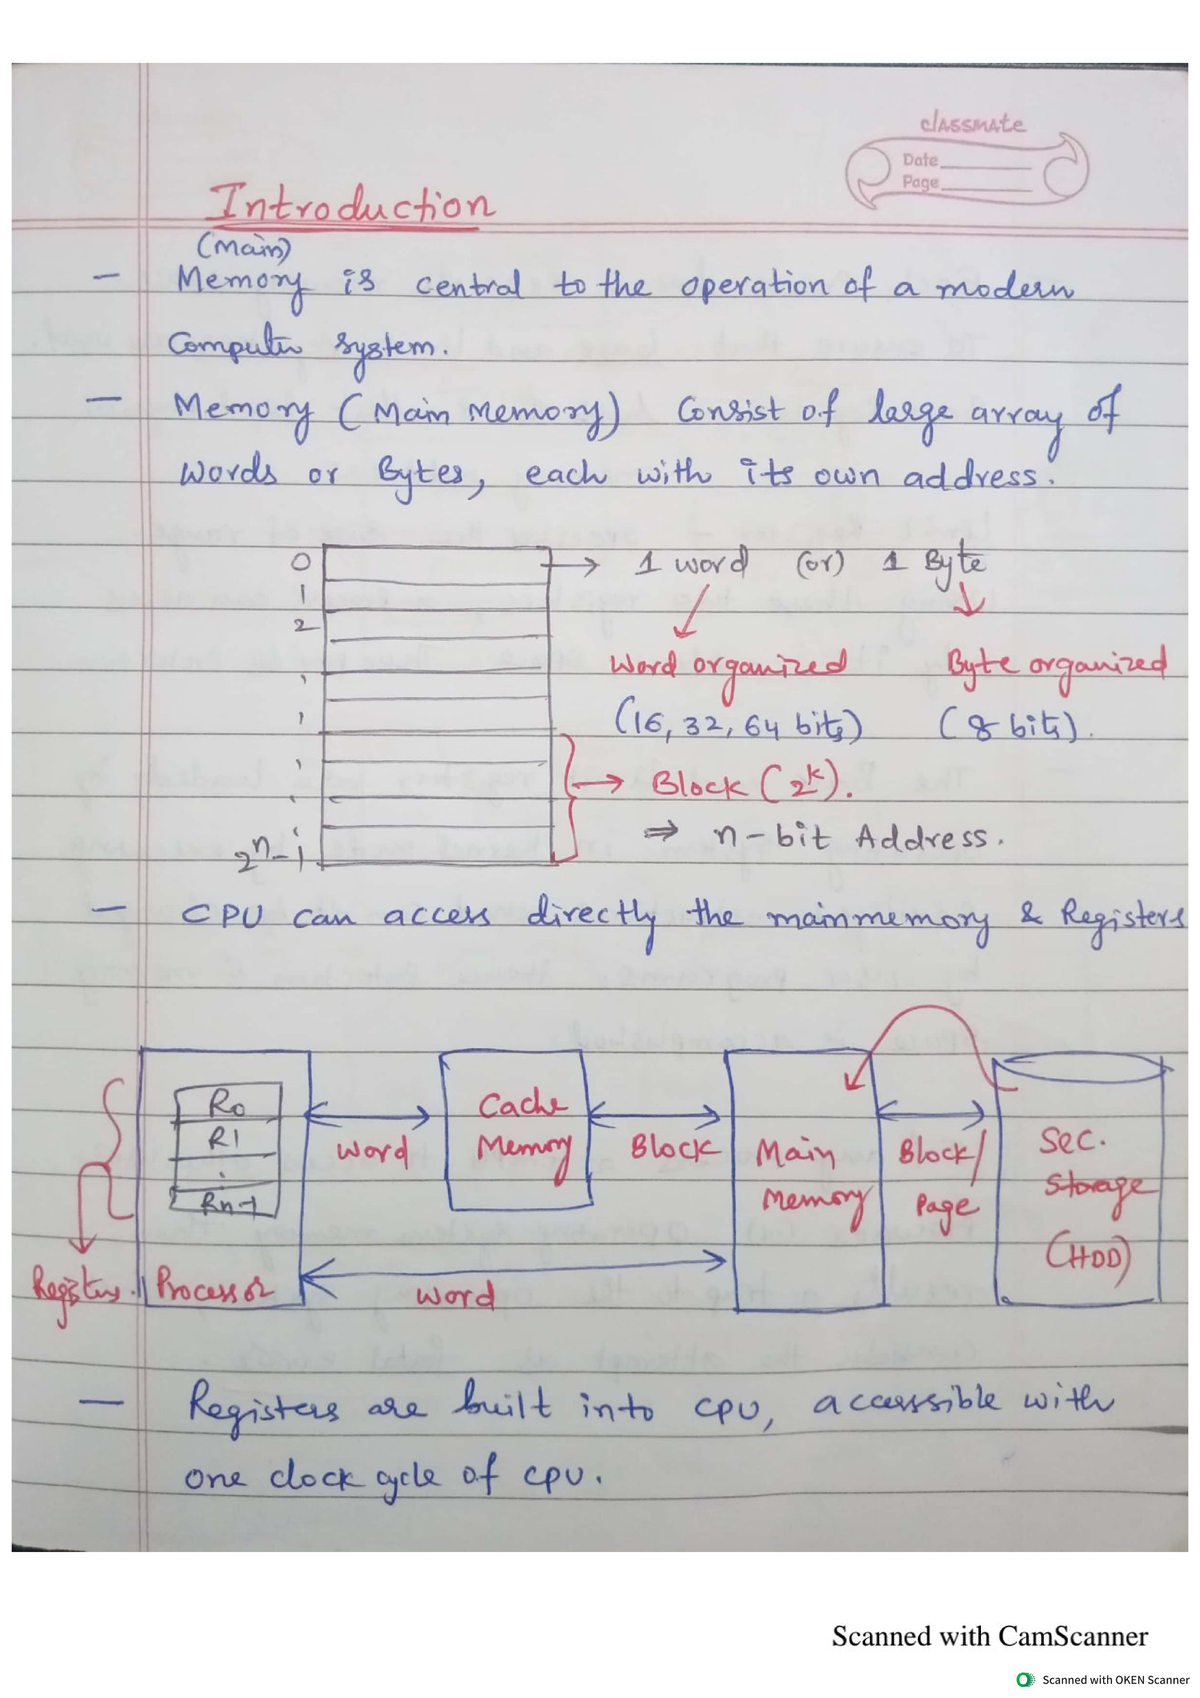 classmate
Date
Page
Introduction
(Main)
— Memory is central to the operation of a modern
Computer system.
— Memory (Main Memory) Consist of large array of
Words or Bytes, each with its own address.
0 → 1 word (or) 1 Byte
1
2
Word organized Byte organized
(16, 32, 64 bits) (8 bits).
→ Block (2^k).
⇒ n-bit Address.
2^n-1
— CPU can access directly the main memory & Registers
R0
R1
Rn-1
Registers.
Processor
word
Cache
Memory
Block
word
Main
Memory
Block/
Page
Sec.
Storage
(HDD)
— Registers are built into CPU, accesssible with
one clock cycle of CPU.
Scanned with CamScanner
Scanned with OKEN Scanner